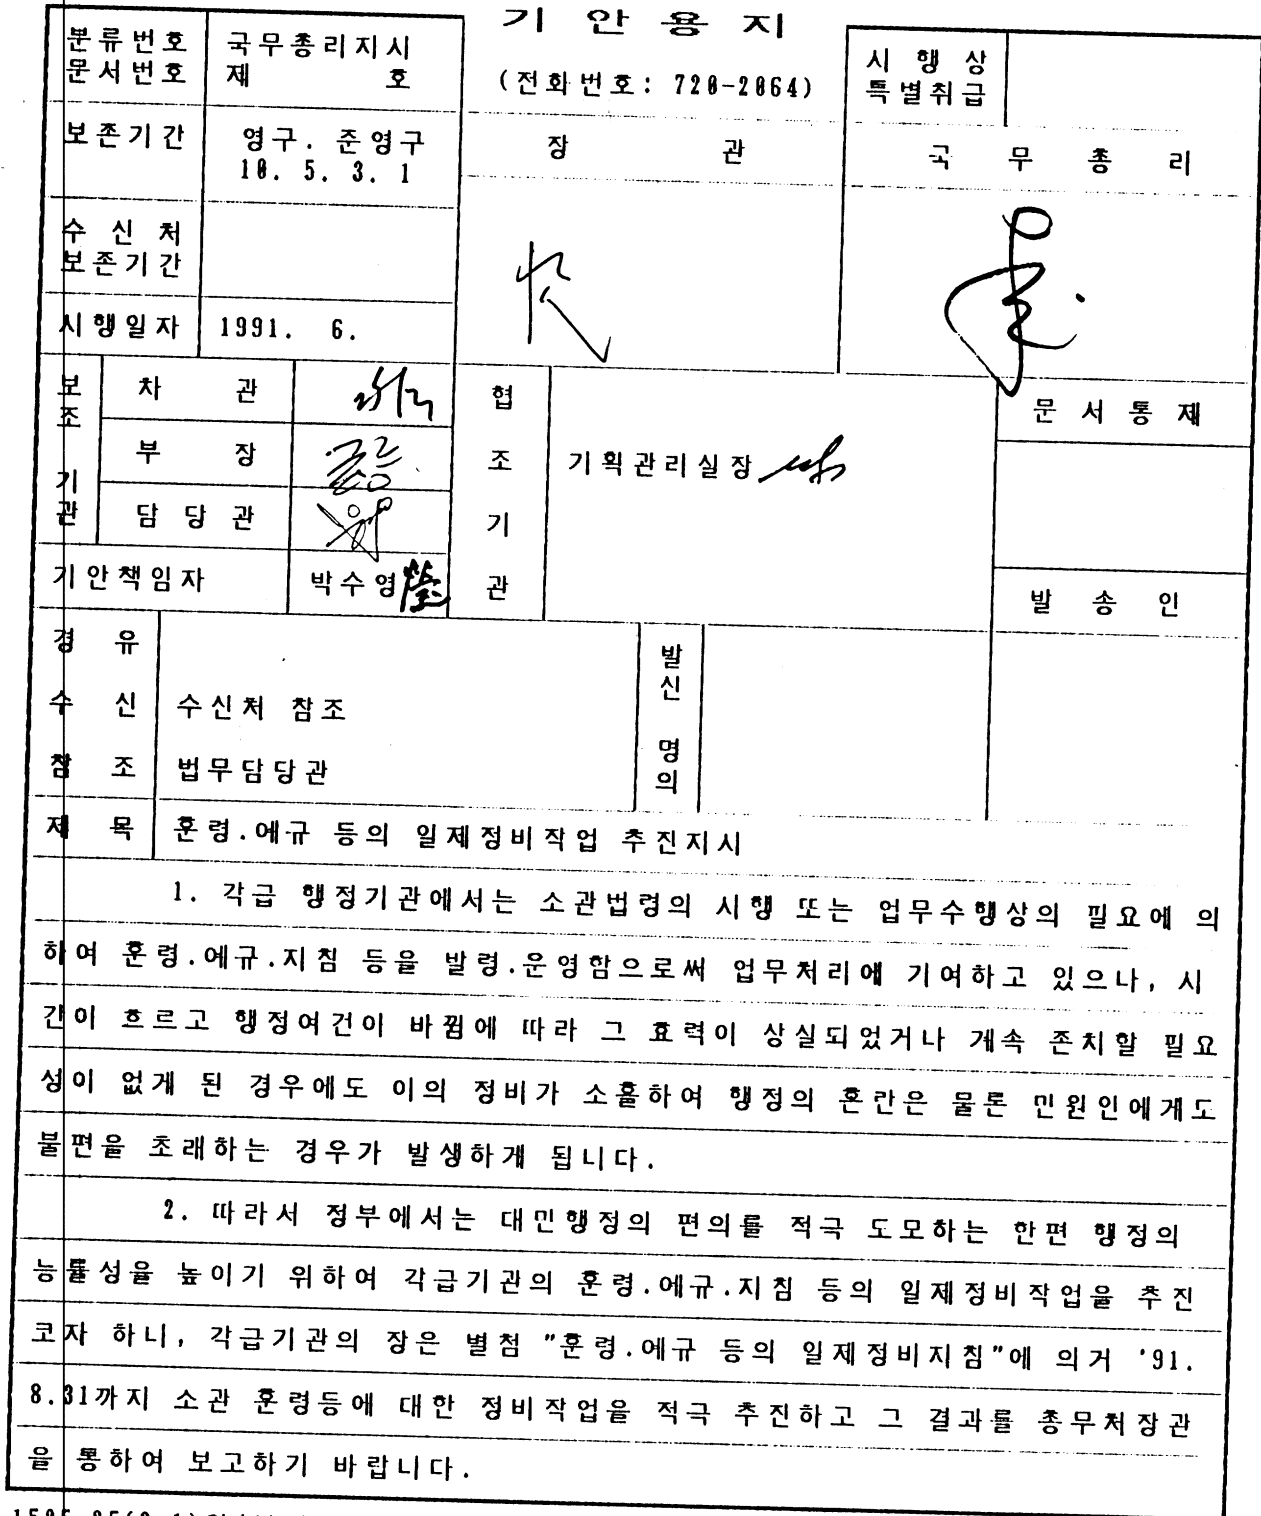 기 안 용 지
분류번호 국무총리지시
문서번호 제 호
(전화번호: 720-2064)
시 행 상
특별취급
보존기간 영구. 준영구
10. 5. 3. 1
장 관
국 무 총 리
수 신 처
보존기간
시행일자 1991. 6.
보조기관
차 관
부 장
담 당 관
협조기관
기획관리실장
문 서 통 제
기안책임자 박수영
발 송 인
경 유
수 신 수신처 참조
참 조 법무담당관
발신 명의
제 목 훈령.예규 등의 일제정비작업 추진지시
1. 각급 행정기관에서는 소관법령의 시행 또는 업무수행상의 필요에 의
하여 훈령.예규.지침 등을 발령.운영함으로써 업무처리에 기여하고 있으나, 시
간이 흐르고 행정여건이 바뀜에 따라 그 효력이 상실되었거나 계속 존치할 필요
성이 없게 된 경우에도 이의 정비가 소홀하여 행정의 혼란은 물론 민원인에게도
불편을 초래하는 경우가 발생하게 됩니다.
2. 따라서 정부에서는 대민행정의 편의를 적극 도모하는 한편 행정의
능률성을 높이기 위하여 각급기관의 훈령.예규.지침 등의 일제정비작업을 추진
코자 하니, 각급기관의 장은 별첨 "훈령.예규 등의 일제정비지침"에 의거 '91.
8.31까지 소관 훈령등에 대한 정비작업을 적극 추진하고 그 결과를 총무처장관
을 통하여 보고하기 바랍니다.